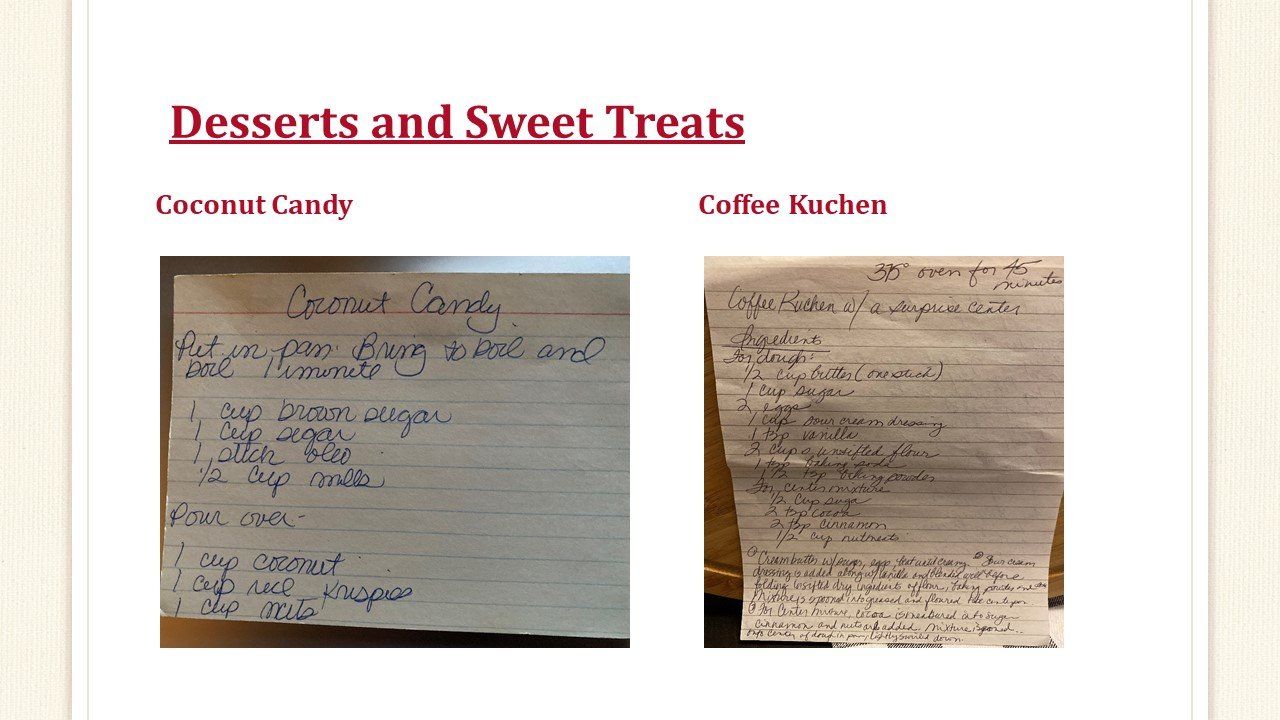 Desserts and Sweet Treats
Coconut Candy
Coconut Candy
Put in pan Bring to boil and
boil 1 minute
1 cup brown sugar
1 cup segar
1 stick oleo
1/2 cup milk
Pour over-
1 cup coconut
1 cup rice Krispies
1 cup nuts
Coffee Kuchen
375° oven for 45
minutes
Coffee Kuchen w/ a surprise center
Ingredients
For dough:
1/2 cup butter (one stick)
1 cup sugar
2 eggs
1 cup sour cream dressing
1 tsp vanilla
2 cups unsifted flour
1 tsp baking soda
1 1/2 tsp baking powder
For center mixture
1/2 cup sugar
2 tsp cocoa
2 tsp cinnamon
1/2 cup nutmeats
① Cream butter w/ sugar, eggs, beat until creamy ② Sour cream
dressing is added along w/ vanilla and blended well before
folding in sifted dry ingredients of flour, baking powder and soda
Mixture is spooned into greased and floured tube cake pan.
For Center Mixture, cocoa is added to sugar
Cinnamon and nuts are added. Mixture is spooned
onto center of dough in pan, lightly swirled down.